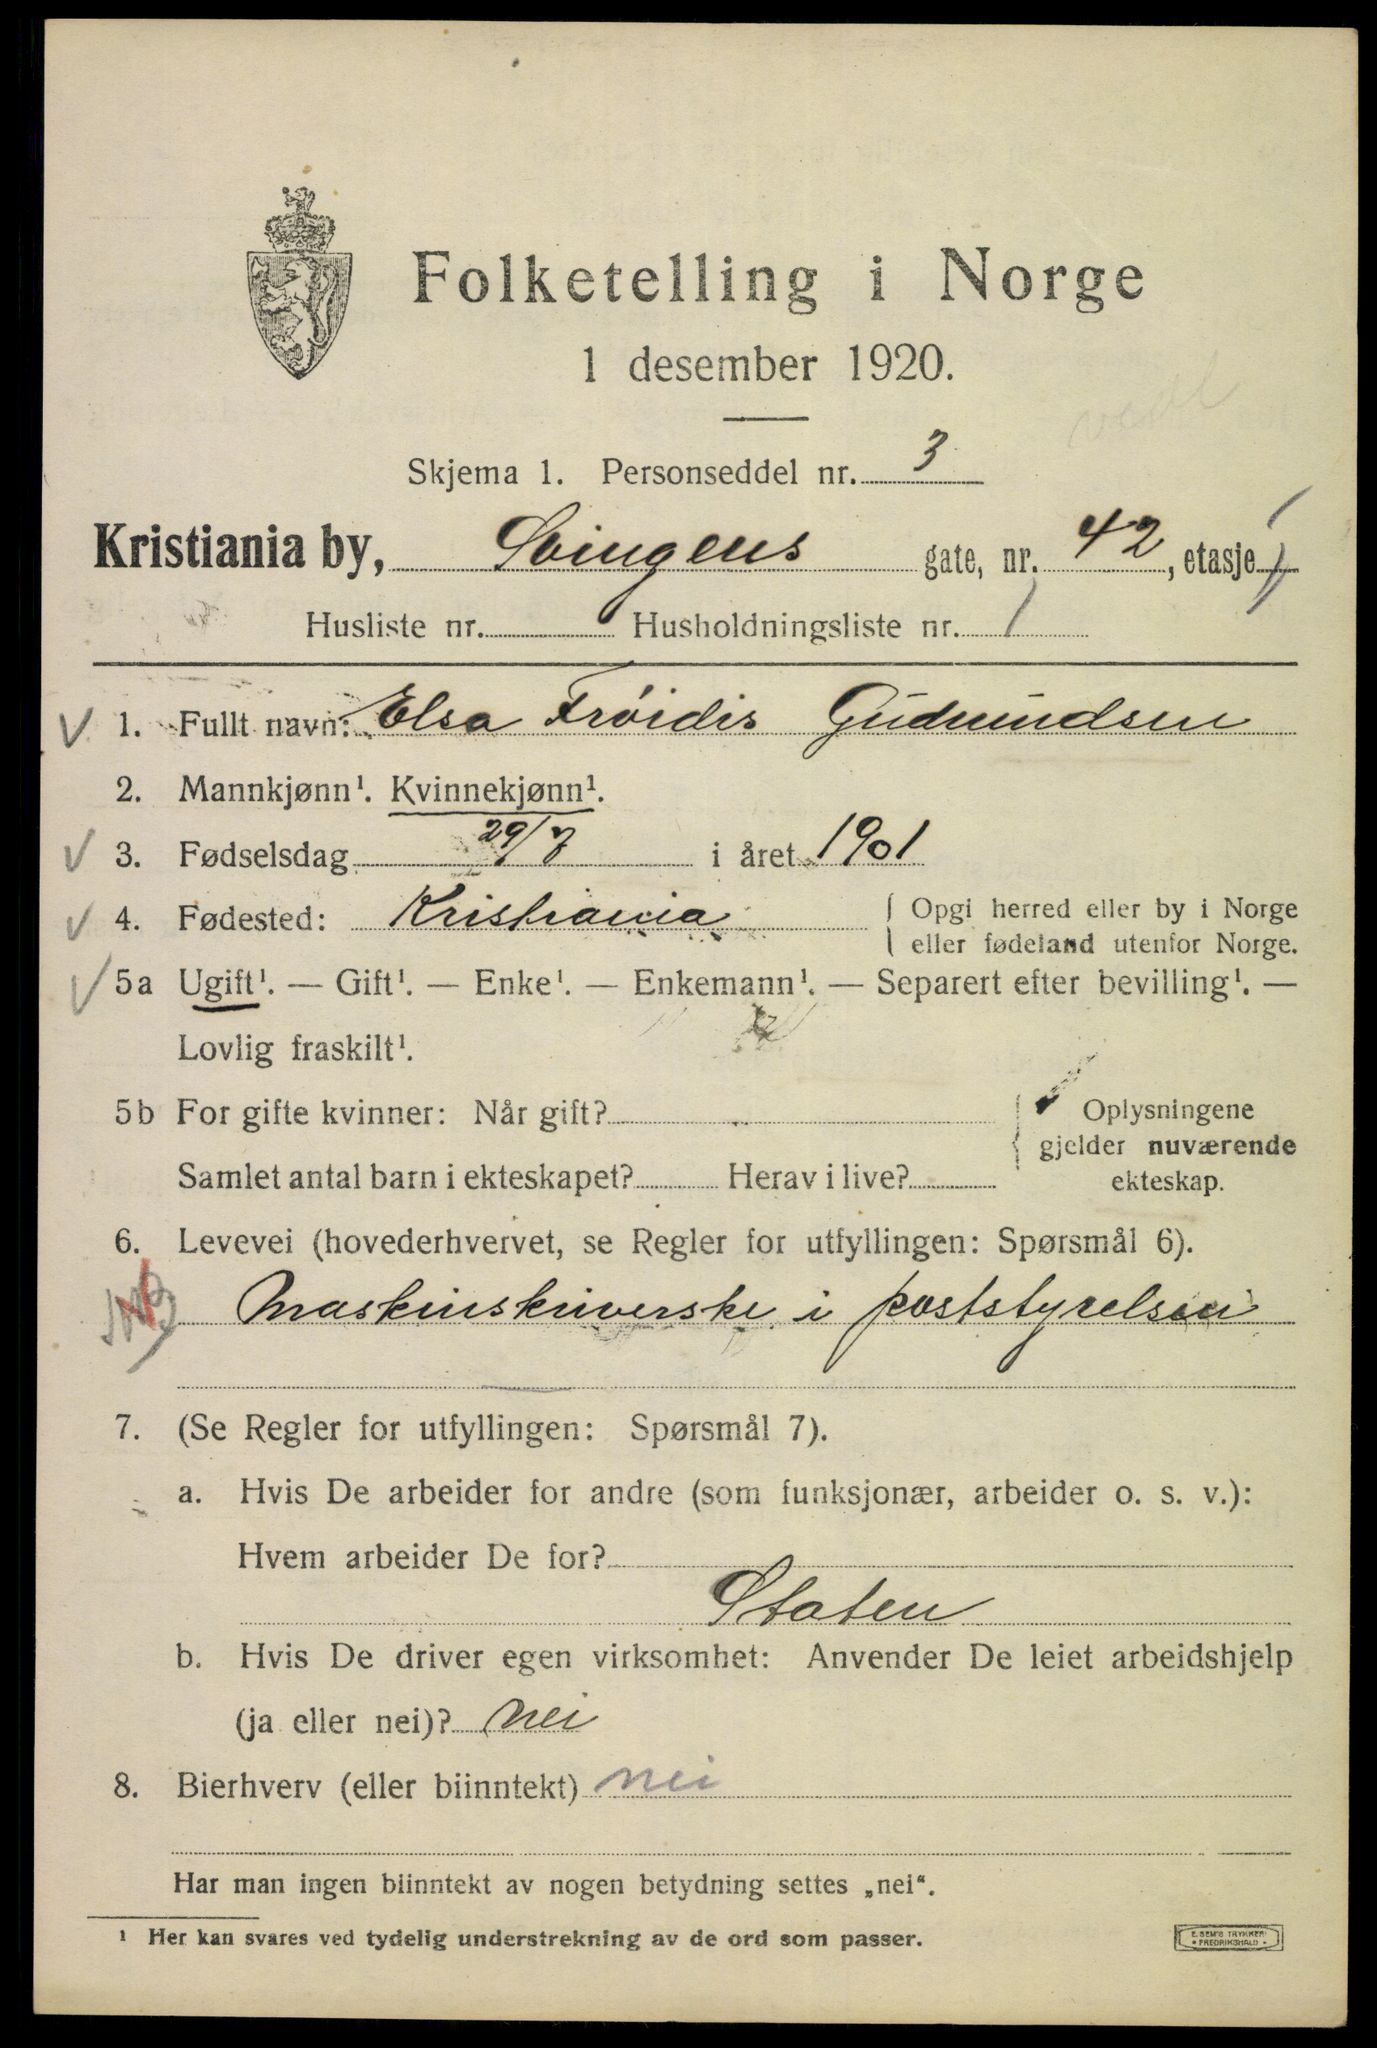 Folketelling i Norge
1 desember 1920.
Skjema 1. Personseddel nr. 3
Kristiania by, Svingens gate, nr. 42, etasje 1
Husliste nr. Husholdningsliste nr. 1
1. Fullt navn: Elsa Frøidis Gudmundsen
2. Mannkjønn¹. Kvinnekjønn¹.
3. Fødselsdag 29/7 i året 1901
4. Fødested: Kristiania { Opgi herred eller by i Norge
eller fødeland utenfor Norge.
5a Ugift¹. — Gift¹. — Enke¹. — Enkemann¹. — Separert efter bevilling¹. —
Lovlig fraskilt¹.
5b For gifte kvinner: Når gift? { Oplysningene
gjelder nuværende
Samlet antal barn i ekteskapet? Herav i live? ekteskap.
6. Levevei (hovederhvervet, se Regler for utfyllingen: Spørsmål 6).
Maskinskriverske i poststyrelsen
7. (Se Regler for utfyllingen: Spørsmål 7).
a. Hvis De arbeider for andre (som funksjonær, arbeider o. s. v.):
Hvem arbeider De for?
Staten
b. Hvis De driver egen virksomhet: Anvender De leiet arbeidshjelp
(ja eller nei)? nei
8. Bierhverv (eller biinntekt) nei
Har man ingen biinntekt av nogen betydning settes „nei“.
¹ Her kan svares ved tydelig understrekning av de ord som passer.
E. SEM'S TRYKKERI
FREDRIKSHALD